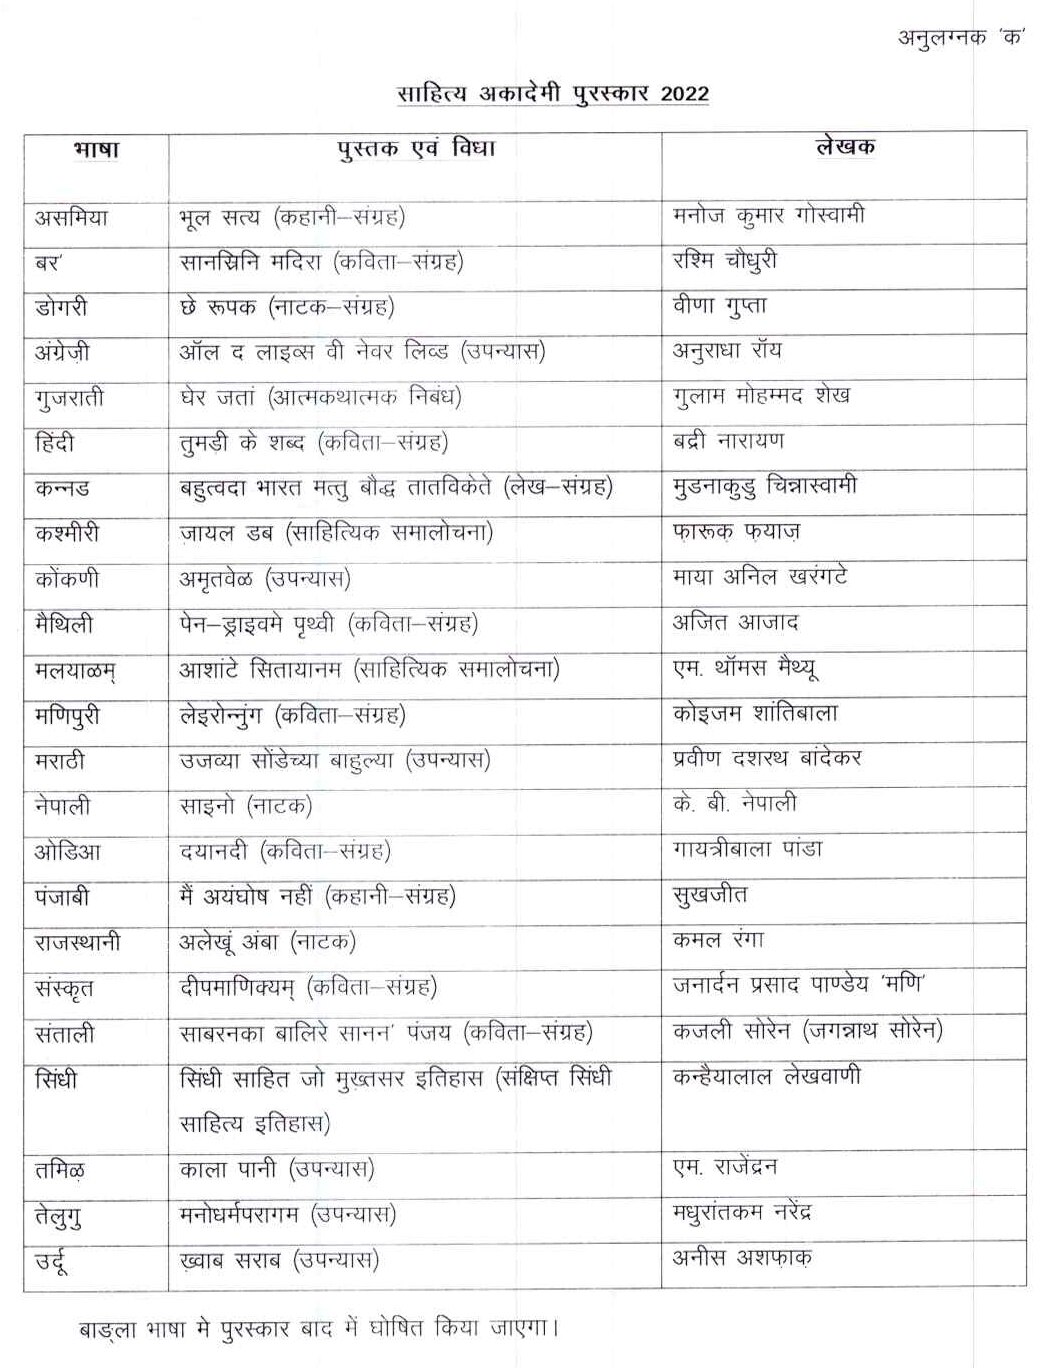 अनुलग्नक 'क'
साहित्य अकादेमी पुरस्कार 2022
भाषा पुस्तक एवं विधा लेखक
असमिया भूल सत्य (कहानी–संग्रह) मनोज कुमार गोस्वामी
बर' सानस्रिनि मदिरा (कविता–संग्रह) रश्मि चौधुरी
डोगरी छे रूपक (नाटक–संग्रह) वीणा गुप्ता
अंग्रेज़ी ऑल द लाइव्स वी नेवर लिव्ड (उपन्यास) अनुराधा रॉय
गुजराती घेर जतां (आत्मकथात्मक निबंध) गुलाम मोहम्मद शेख
हिंदी तुमड़ी के शब्द (कविता–संग्रह) बद्री नारायण
कन्नड बहुत्वदा भारत मत्तु बौद्ध तातविकेते (लेख–संग्रह) मुडनाकुडु चिन्नास्वामी
कश्मीरी ज़ायल डब (साहित्यिक समालोचना) फ़ारूक़ फ़याज़
कोंकणी अमृतवेळ (उपन्यास) माया अनिल खरंगटे
मैथिली पेन–ड्राइवमे पृथ्वी (कविता–संग्रह) अजित आजाद
मलयाळम् आशांटे सितायानम (साहित्यिक समालोचना) एम. थॉमस मैथ्यू
मणिपुरी लेइरोन्नुंग (कविता–संग्रह) कोइजम शांतिबाला
मराठी उजव्या सोंडेच्या बाहुल्या (उपन्यास) प्रवीण दशरथ बांदेकर
नेपाली साइनो (नाटक) के. बी. नेपाली
ओडिआ दयानदी (कविता–संग्रह) गायत्रीबाला पांडा
पंजाबी मैं अयंघोष नहीं (कहानी–संग्रह) सुखजीत
राजस्थानी अलेखूं अंबा (नाटक) कमल रंगा
संस्कृत दीपमाणिक्यम् (कविता–संग्रह) जनार्दन प्रसाद पाण्डेय 'मणि'
संताली साबरनका बालिरे सानन' पंजय (कविता–संग्रह) कजली सोरेन (जगन्नाथ सोरेन)
सिंधी सिंधी साहित जो मुख़्तसर इतिहास (संक्षिप्त सिंधी कन्हैयालाल लेखवाणी
साहित्य इतिहास)
तमिळ काला पानी (उपन्यास) एम. राजेंद्रन
तेलुगु मनोधर्मपरागम (उपन्यास) मधुरांतकम नरेंद्र
उर्दू ख़्वाब सराब (उपन्यास) अनीस अशफ़ाक़
बाङ्ला भाषा मे पुरस्कार बाद में घोषित किया जाएगा।